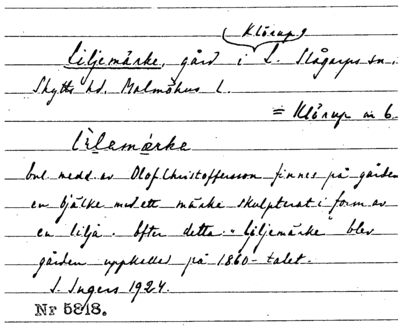 Klörup
Liljemärke, gård i L. Slågarps sn.
Skytts hd. Malmöhus l.
= Klörup nr 6.
Lilemärke
enl. medd. av Olof Christoffersson finnes på gården
en bjälke med ett märke skulpterat i form av
en lilja. Efter detta "liljemärke blev
gården uppkallad på 1860-talet.
I. Ingers 1924.
Nr 5818.